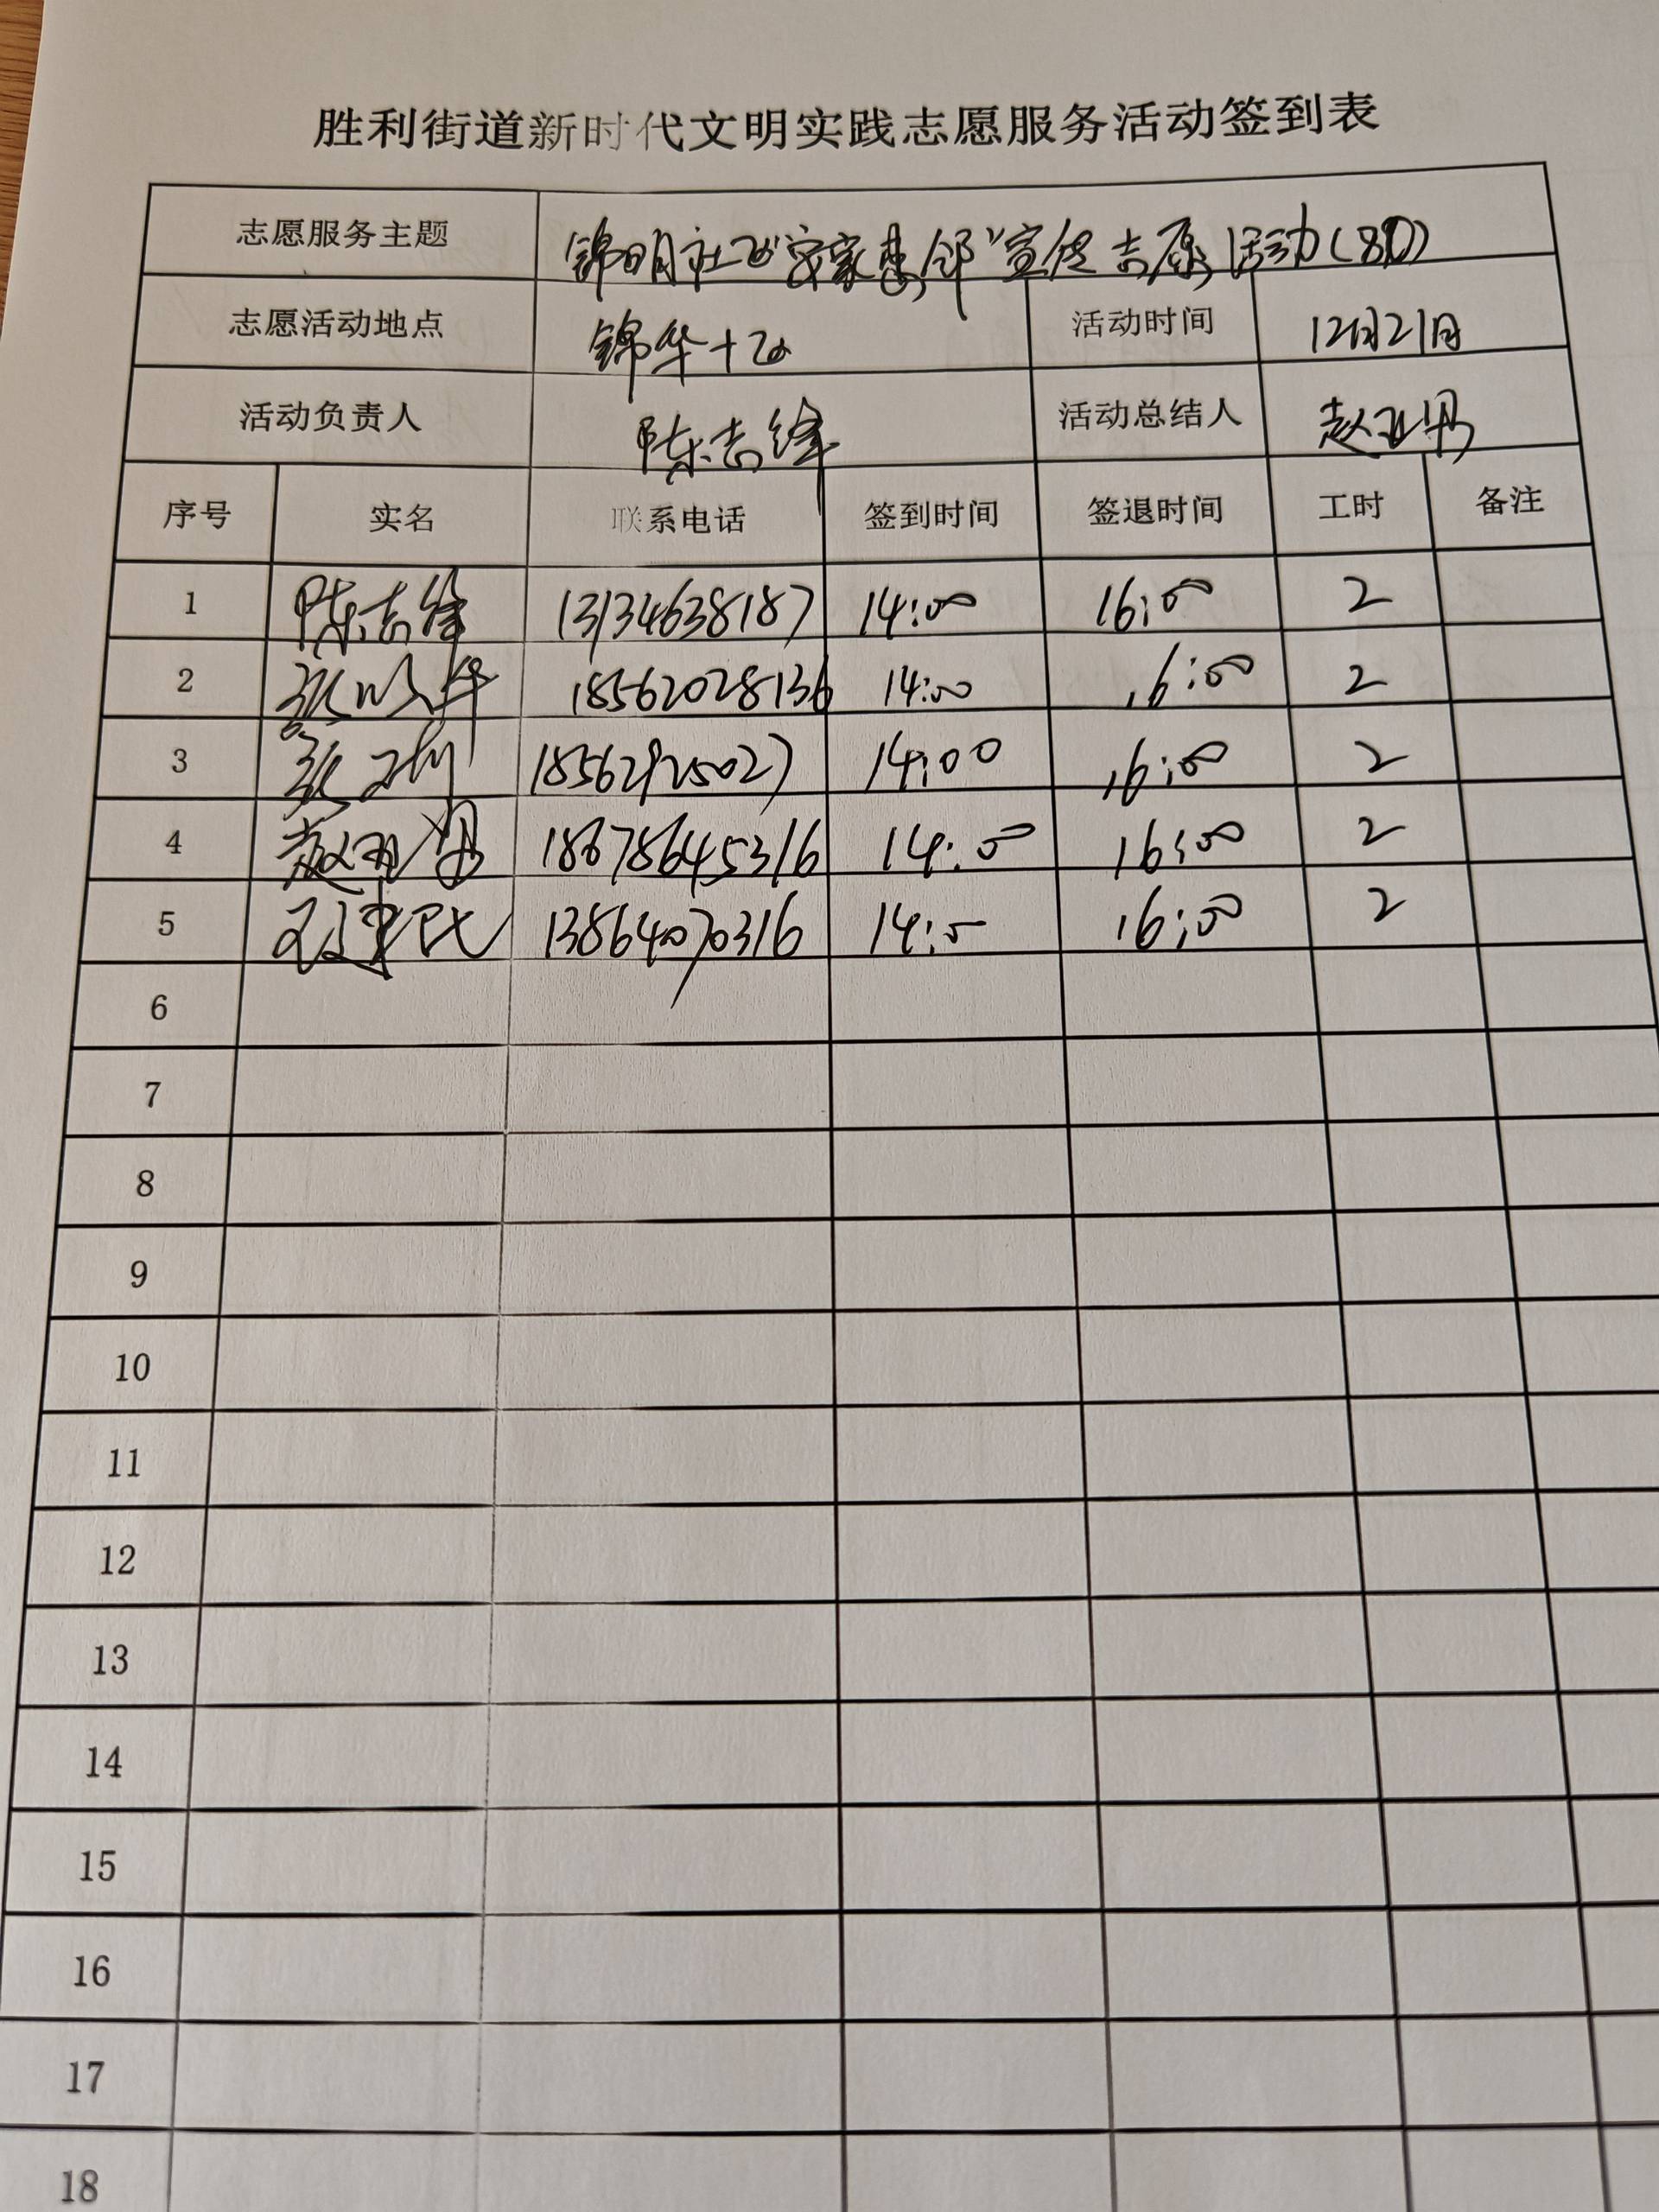 胜利街道新时代文明实践志愿服务活动签到表
志愿服务主题 锦明社区"安家惠邻"宣传志愿活动(80)
志愿活动地点 锦华十区 活动时间 12月21日
活动负责人 陈志锋 活动总结人 赵亚男
序号 实名 联系电话 签到时间 签退时间 工时 备注
1 陈志锋 13134638187 14:00 16:00 2
2 18562028136 14:00 16:00 2
3 18562925027 14:00 16:00 2
4 赵亚男 18678645316 14:00 16:00 2
5 13864070316 14:00 16:00 2
6
7
8
9
10
11
12
13
14
15
16
17
18